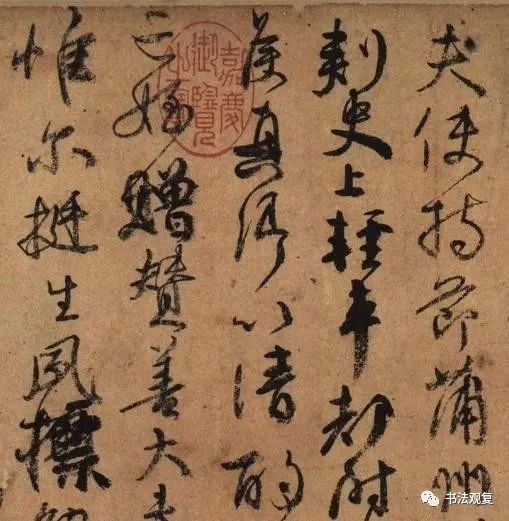 夫使持節蒲州
刺史上輕車都尉
侯真卿以清酌
亡姪贈贊善大夫
惟尔挺生夙標
嘉慶御覽之寶
书法观复